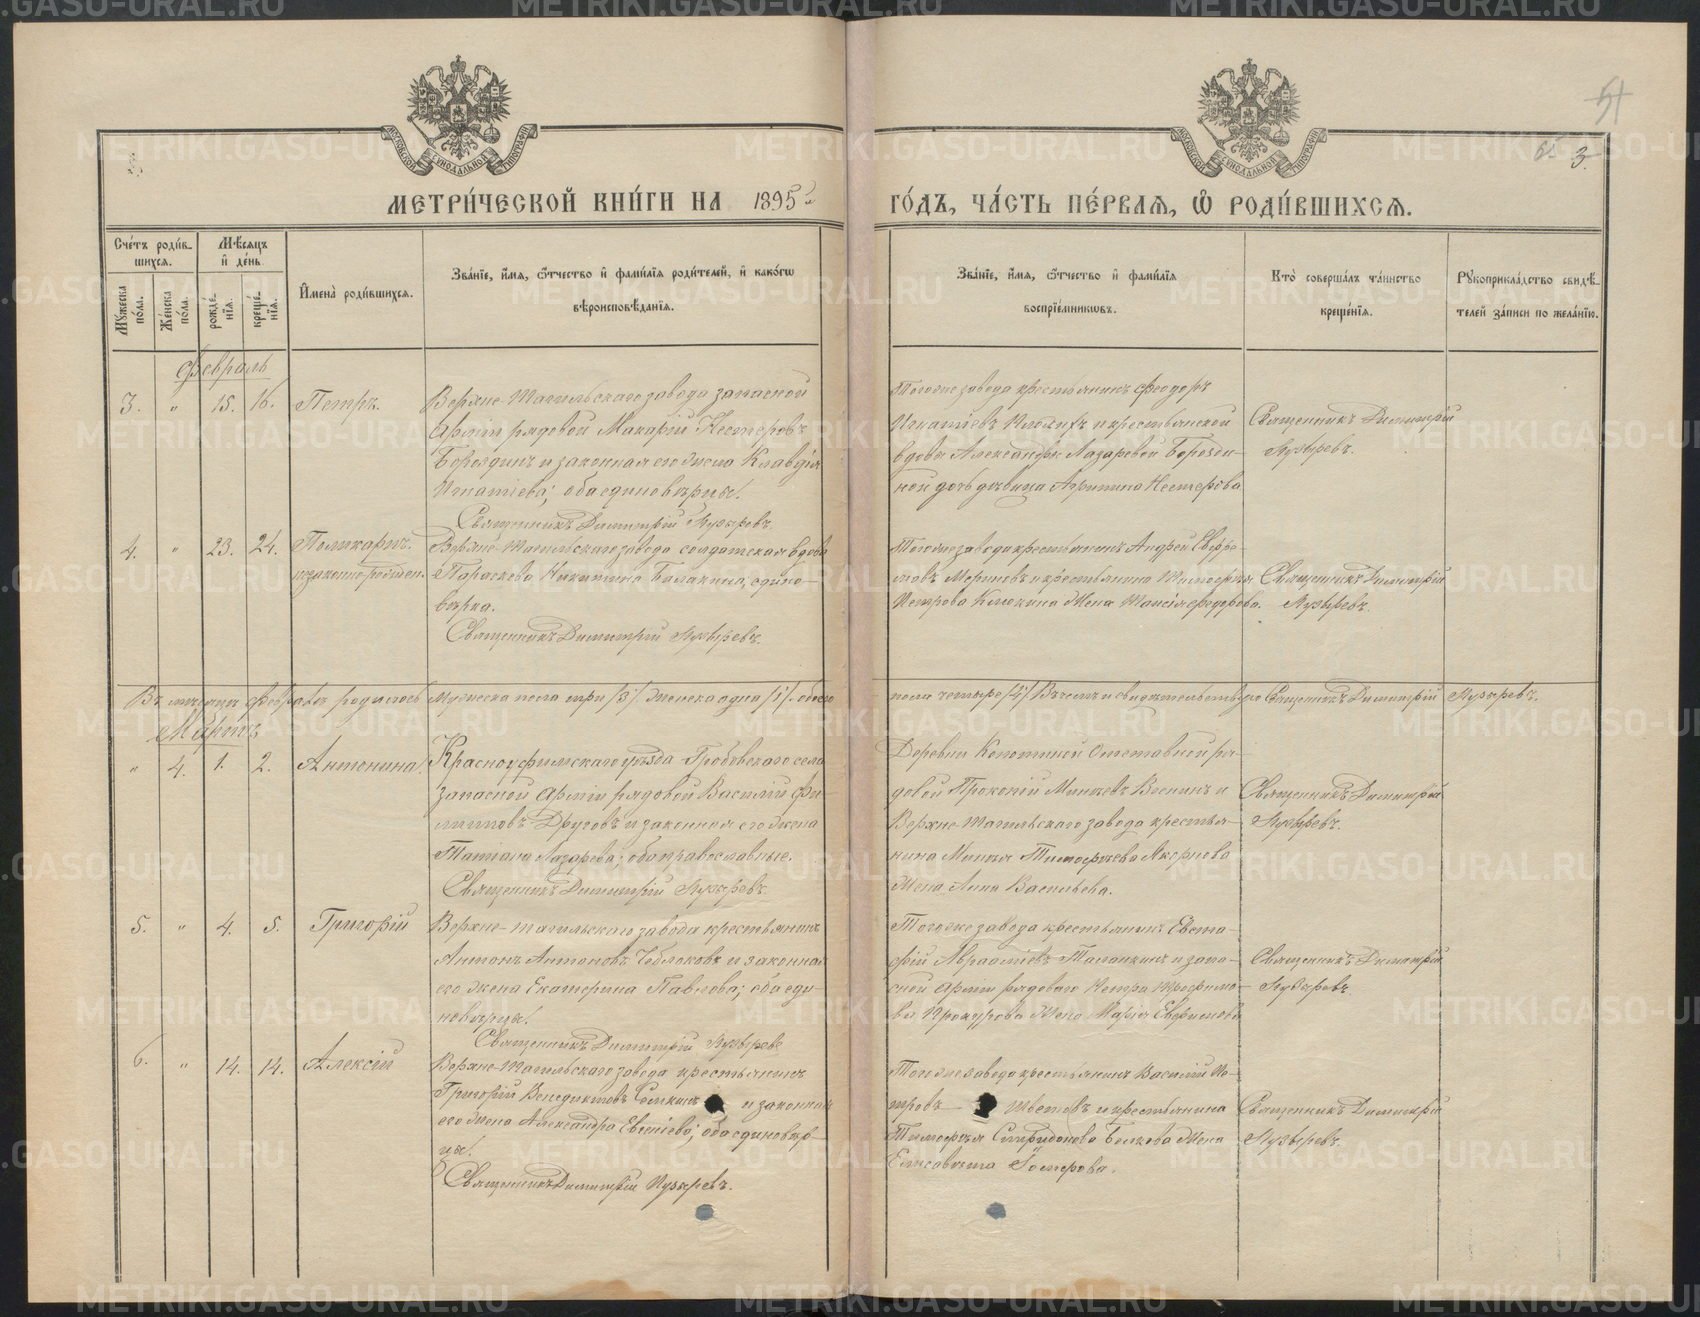 МОСКОВСКОЙ СѴНОДАЛЬНОЙ ТИПОГРАФІИ
МОСКОВСКОЙ СѴНОДАЛЬНОЙ ТИПОГРАФІИ
51
3.
МЕТРИ́ЧЕСКОЙ КНИ́ГИ НА 1895
ГО́ДЪ, ЧА́СТЬ ПЕ́РВАЯ, Ѡ РОДИ́ВШИХСЯ.
Сче́тъ роди́в-
шихся.
Мѣ́сяцъ
и҆ де́нь.
Мꙋ́жеска по́ла.
Же́нска по́ла.
рожде́нїя.
креще́нїя.
И҆мена̀ роди́вшихся.
Зва́нїе, и҆́мя, ѻ҆́тчество и҆ фами́лїя роди́телей, и҆ како́гѡ
вѣроисповѣ́данїя.
Зва́нїе, и҆́мя, ѻ҆́тчество и҆ фами́лїя
воспрїе́мникѡвъ.
Кто̀ соверша́лъ та́инство
креще́нїя.
Рꙋкоприкла́дство свидѣ́-
телей за́писи по жела́нїю.
Февраль
3. " 15. 16. Петръ.
Верхне-Тагильскаго завода запасной
Арміи рядовой Макарій Нестеровъ
Бороздинъ и законная его жена Клавдія
Игнатіева; оба единовѣрцы.
Священникъ Димитрій Пузыревъ
Тогоже завода крестьянинъ Феодоръ
Игнатіевъ и крестьянской
вдовы Александры Лазаревой Борозди-
ной дочь дѣвица Агрипина Нестерова
Священникъ Димитрій
Пузыревъ.
4. " 23. 24. Поликарпъ.
незаконнорожден.
Верхне-Тагильскаго завода солдатская вдова
Параскева Никитина Балакина, едино-
вѣрка.
Священникъ Димитрій Пузыревъ.
Тогоже завода крестьянинъ Андрей Евфре-
мовъ и крестьянина Тимофея
Петрова Клюкина жена Таисія Федорова.
Священникъ Димитрій
Пузыревъ.
Въ мѣсяцѣ Февралѣ родилось Мужеска пола три /3/ Женска одна /1/. обоего
пола четыре /4/ Въ семъ и свидѣтельствую Священникъ Димитрій Пузыревъ.
Мартъ
" 4. 1. 2. Антонина.
Красноуфимскаго уѣзда Гробовскаго села
запасной Арміи рядовой Василій Фи-
липповъ Друговъ и законная его жена
Татіана Лазарева; оба православные.
Священникъ Димитрій Пузыревъ.
Деревни Копотиной Отставной ря-
довой Прокопій и
Верхне-Тагильскаго завода крестья-
нина Тимофеева
жена Анна Васильева.
Священникъ Димитрій
Пузыревъ.
5. " 4. 5. Григорій
Верхне-Тагильскаго завода крестьянинъ
Антонъ Антоновъ и законная
его жена Екатерина Павлова; оба еди-
новѣрцы.
Священникъ Димитрій Пузыревъ
Тогоже завода крестьянинъ Евста-
фій Авраамієвъ и запа-
сной Арміи рядоваго Петра Трофимо-
ва жена Марія
Священникъ Димитрій
Пузыревъ.
6. " 14. 14. Алексій
Верхне-Тагильскаго завода крестьянинъ
Григорій Венедиктовъ и законная
его жена Александра Евгеніева; оба единовѣр-
цы.
Священникъ Димитрій Пузыревъ.
Тогоже завода крестьянинъ Василій Пе-
тровъ и крестьянина
Тимофея Спиридонова жена
Елисавета
Священникъ Димитрій
Пузыревъ.